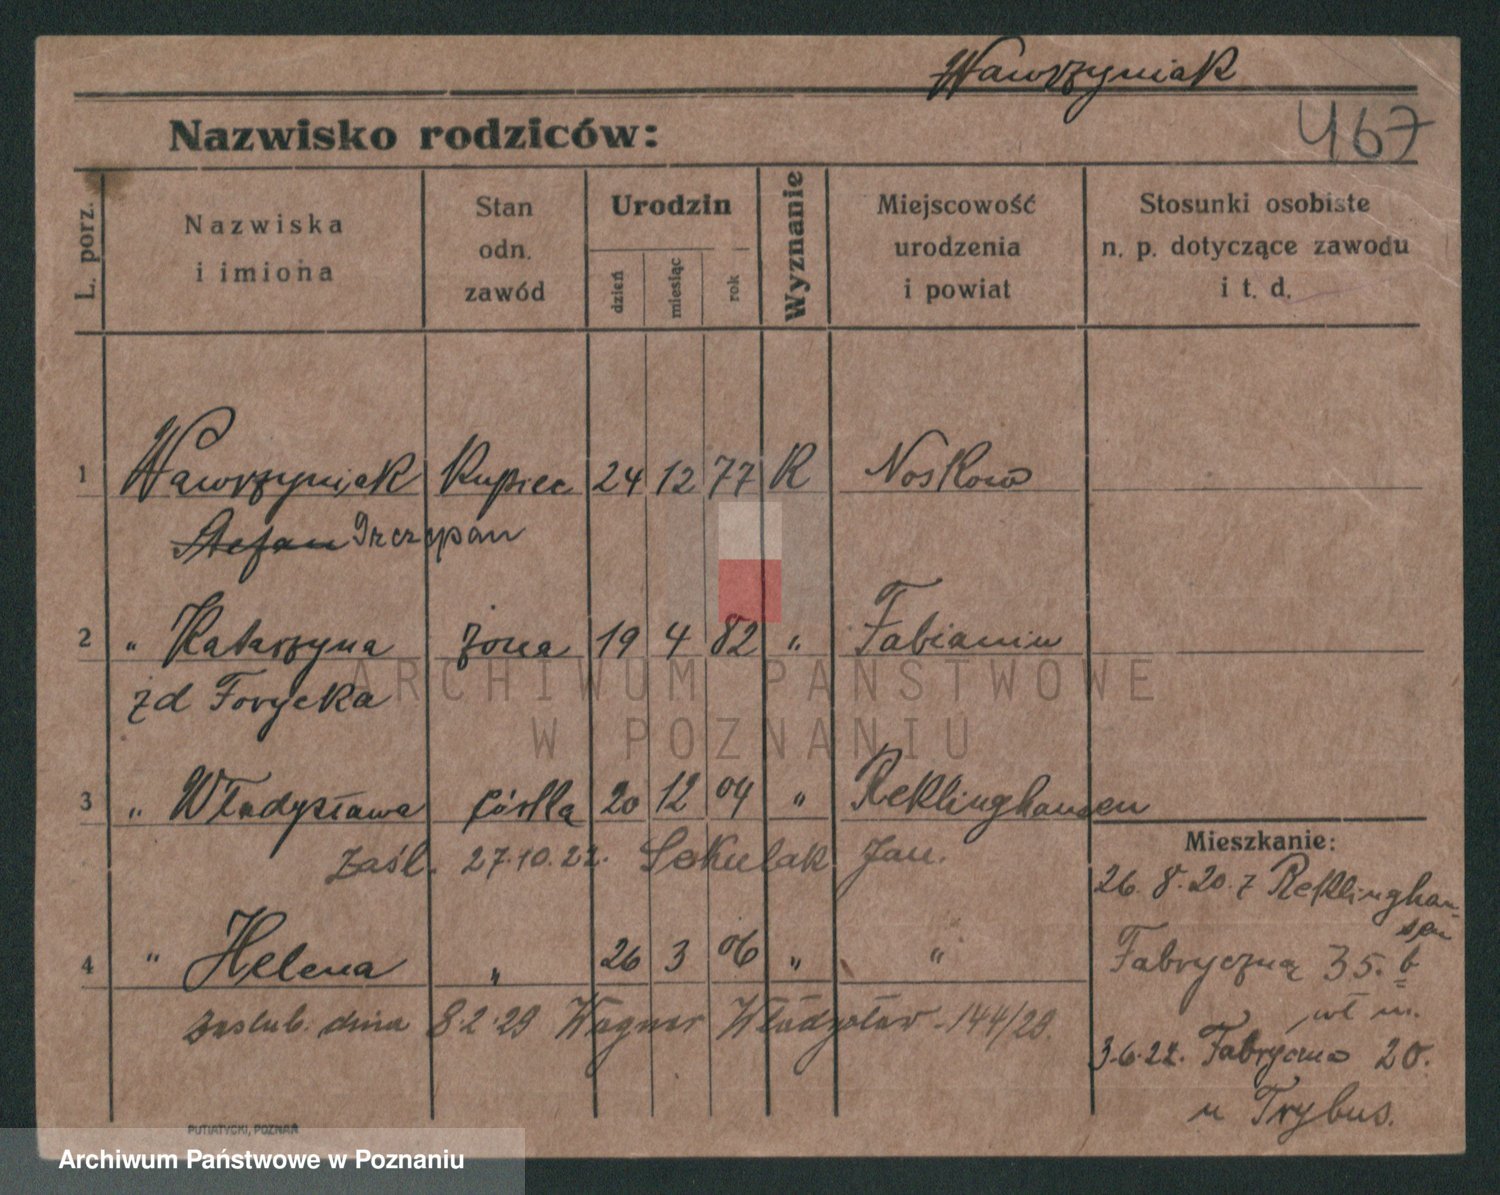 Wawrzyniak
467
Nazwisko rodziców:
L. porz.
Nazwiska
i imiona
Stan
odn.
zawód
Urodzin
dzień
miesiąc
rok
Wyznanie
Miejscowość
urodzenia
i powiat
Stosunki osobiste
n. p. dotyczące zawodu
i t. d.
1 Wawrzyniak Kupiec 24 12 77 R Noskowo
Stefan Szczepan
2 " Katarzyna żona 19 4 82 " Fabianiu
zd Forycka
ARCHIWUM PAŃSTWOWE
W POZNANIU
3 " Władysława córka 20 12 04 " Reklinghausen
zaśl. 27.10.22. Sekulak Jan.
Mieszkanie:
26.8.20. z Reklinghau-
sen
4 " Helena " 26 3 06 " "
Fabryczną 35. b
wł m.
zaslub. dnia 8.2.29 Wagner Władysław - 144/29.
3.6.22. Fabryczna 20.
u Trybus.
PUTIATYCKI, POZNAŃ
Archiwum Państwowe w Poznaniu